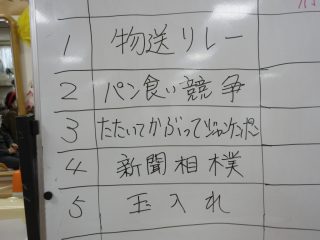 1 物送リレー
2 パン食い競争
3 たたいてかぶってジャンケンポン
4 新聞相撲
5 玉入れ